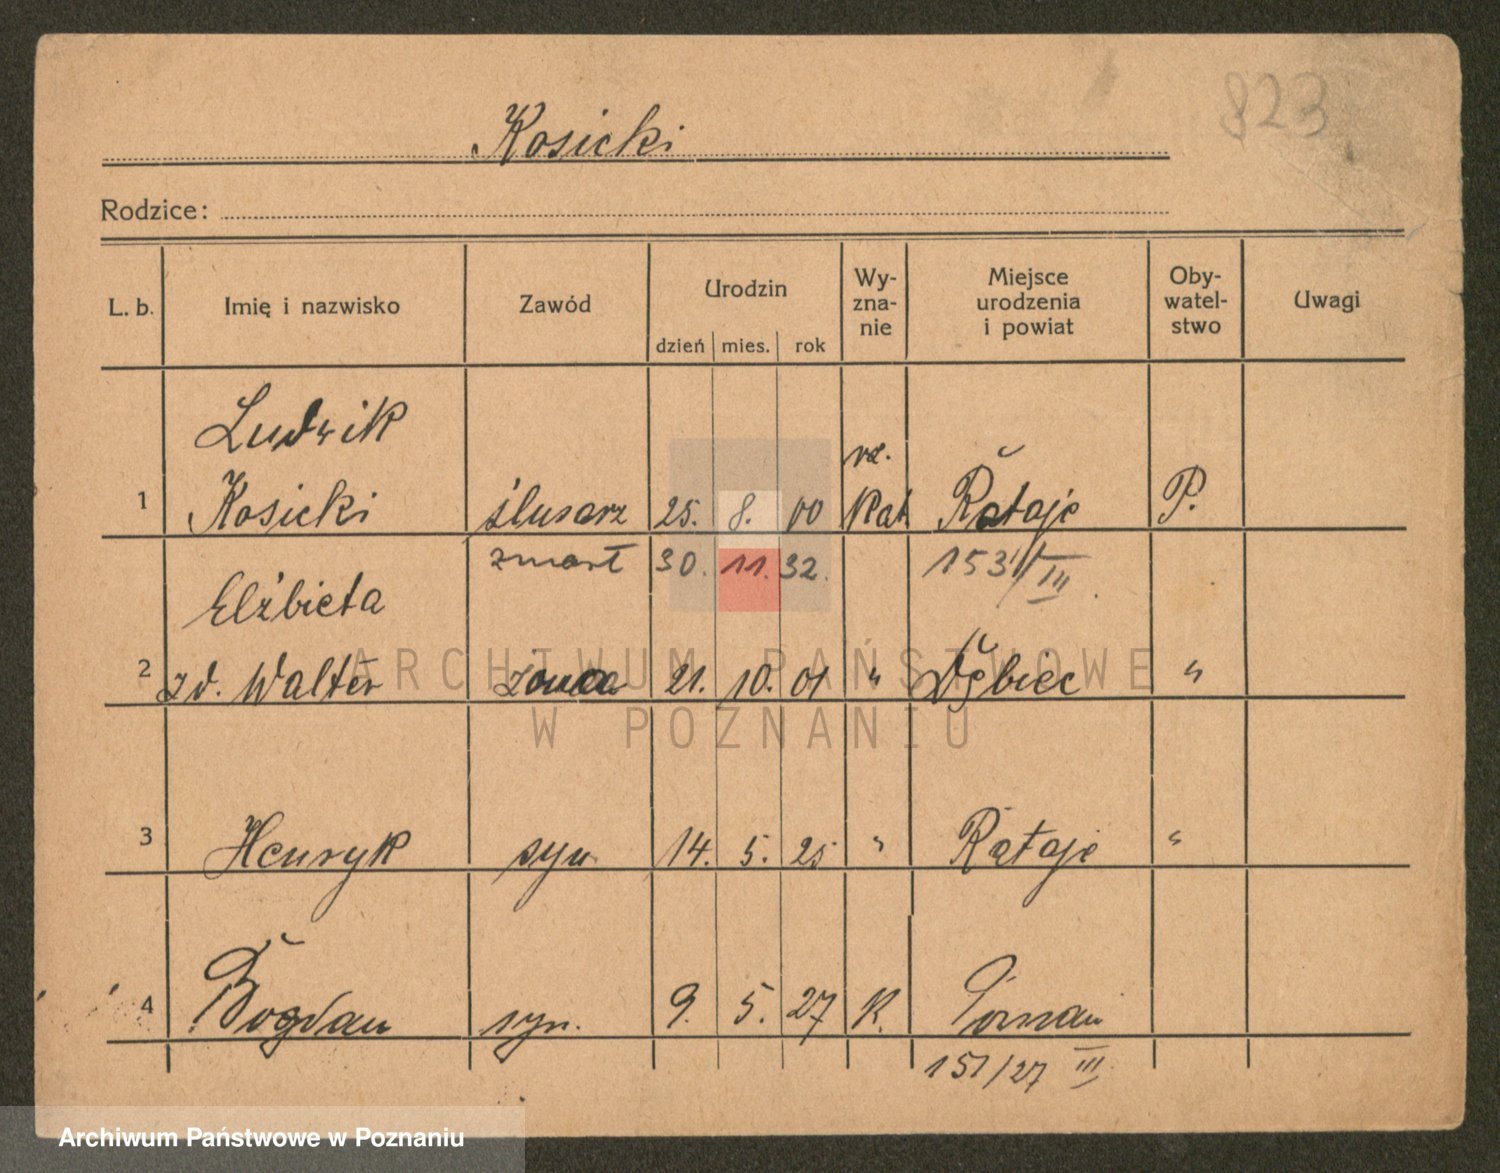 823
Kosicki
Rodzice:
L. b. Imię i nazwisko Zawód Urodzin dzień mies. rok Wy-zna-nie Miejsce urodzenia i powiat Oby-watel-stwo Uwagi
Ludwik
rz.
1 Kosicki ślusarz 25. 8. 00 Kat. Rataje P.
zmarł 30. 11. 32. 153/III
Elżbieta
2 zd. Walter żona 21. 10. 01 " Dębiec "
3 Henryk syn 14. 5. 25 " Rataje "
4 Bogdan syn. 9. 5. 27 K. Poznań
151/27 III
ARCHIWUM PAŃSTWOWE
W POZNANIU
Archiwum Państwowe w Poznaniu